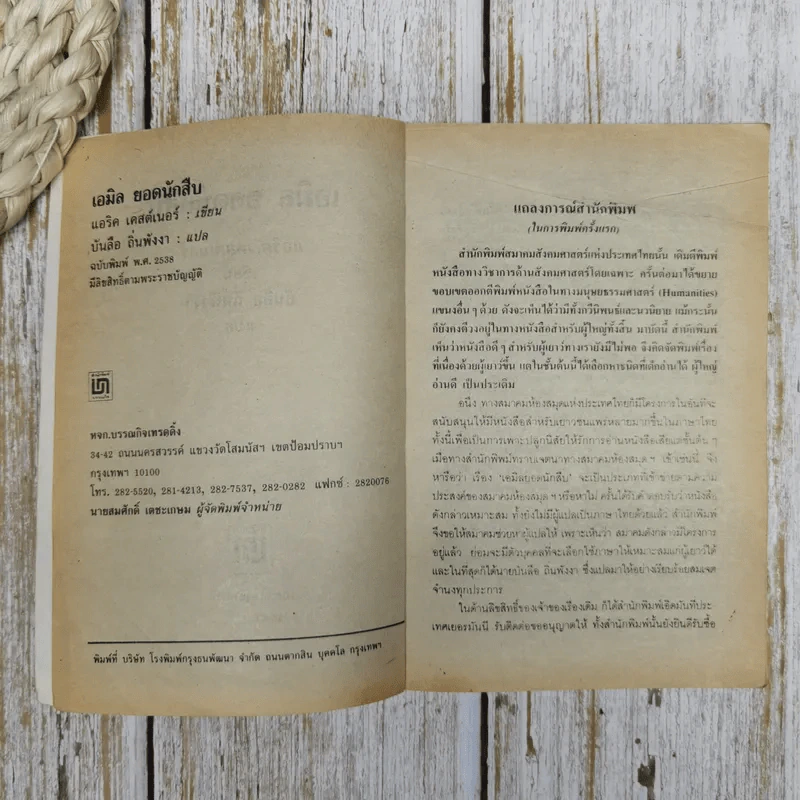 เอมิล ยอดนักสืบ
แอริค เคสต์เนอร์ : เขียน
บันลือ ถิ่นพังงา : แปล
ฉบับพิมพ์ พ.ศ. 2538
มีลิขสิทธิ์ตามพระราชบัญญัติ
หจก.บรรณกิจเทรดดิ้ง
34-42 ถนนนครสวรรค์ แขวงวัดโสมนัสฯ เขตป้อมปราบฯ
กรุงเทพฯ 10100
โทร. 282-5520, 281-4213, 282-7537, 282-0282 แฟกซ์ : 2820076
นายสมศักดิ์ เตชะเกษม ผู้จัดพิมพ์จำหน่าย
พิมพ์ที่ บริษัท โรงพิมพ์กรุงธนพัฒนา จำกัด ถนนตากสิน บุคคโล กรุงเทพฯ
แถลงการณ์สำนักพิมพ์
(ในการพิมพ์ครั้งแรก)
สำนักพิมพ์สมาคมสังคมศาสตร์แห่งประเทศไทยนั้น เดิมตีพิมพ์
หนังสือทางวิชาการด้านสังคมศาสตร์โดยเฉพาะ ครั้นต่อมาได้ขยาย
ขอบเขตออกตีพิมพ์หนังสือในทางมนุษยธรรมศาสตร์ (Humanities)
แขนงอื่น ๆ ด้วย ดังจะเห็นได้ว่ามีทั้งกวีนิพนธ์และนวนิยาย แม้กระนั้น
ก็ยังคงตีวงอยู่ในทางหนังสือสำหรับผู้ใหญ่ทั้งสิ้น มาบัดนี้ สำนักพิมพ์
เห็นว่าหนังสือดี ๆ สำหรับผู้เยาว์ทางเรายังมีไม่พอ จึงคิดจัดพิมพ์เรื่อง
ที่เนื่องด้วยผู้เยาว์ขึ้น แต่ในชั้นต้นนี้ได้เลือกหาชนิดที่เด็กอ่านได้ ผู้ใหญ่
อ่านดี เป็นประเดิม
อนึ่ง ทางสมาคมห้องสมุดแห่งประเทศไทยก็มีโครงการในอันที่จะ
สนับสนุนให้มีหนังสือสำหรับเยาวชนแพร่หลายมากขึ้นในภาษาไทย
ทั้งนี้เพื่อเป็นการเพาะปลูกนิสัยให้รักการอ่านหนังสือเสียแต่ชั้นต้น ๆ
เมื่อทางสำนักพิมพ์ทราบเจตนาทางสมาคมห้องสมุดฯ เข้าเช่นนี้ จึง
หารือว่า เรื่อง 'เอมิลยอดนักสืบ' จะเป็นประเภทที่เข้าข่ายตามความ
ประสงค์ของสมาคมห้องสมุดฯ หรือหาไม่ ครั้นได้รับคำตอบรับว่าหนังสือ
ดังกล่าวเหมาะสม ทั้งยังไม่มีผู้แปลเป็นภาษาไทยด้วยแล้ว สำนักพิมพ์
จึงขอให้สมาคมช่วยหาผู้แปลให้ เพราะเห็นว่า สมาคมดังกล่าวมีโครงการ
อยู่แล้ว ย่อมจะมีตัวบุคคลที่จะเลือกใช้ภาษาให้เหมาะสมแก่ผู้เยาว์ได้
และในที่สุดก็ได้นายบันลือ ถิ่นพังงา ซึ่งแปลมาให้อย่างเรียบร้อยสมเจต
จำนงทุกประการ
ในด้านลิขสิทธิ์ของเจ้าของเรื่องเดิม ก็ได้สำนักพิมพ์เอิดมันที่ประ-
เทศเยอรมันนี รับติดต่อขออนุญาตให้ ทั้งสำนักพิมพ์นั้นยังยินดีรับซื้อ